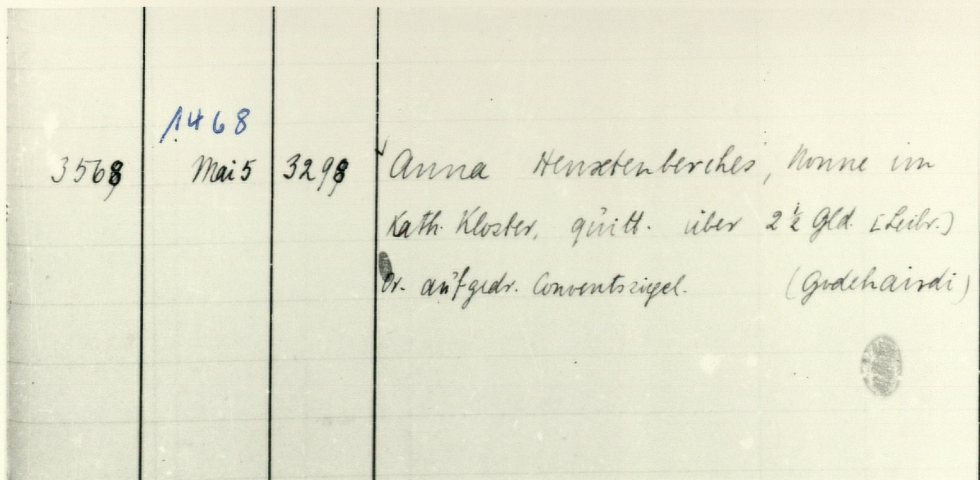 1468
3568 Mai 5 3298 Anna Henxtenberches, Nonne im
Kath. Kloster, quitt. über 2½ Gld. [Leibr.]
Or. aufgedr. Conventssiegel. (Godehardi)